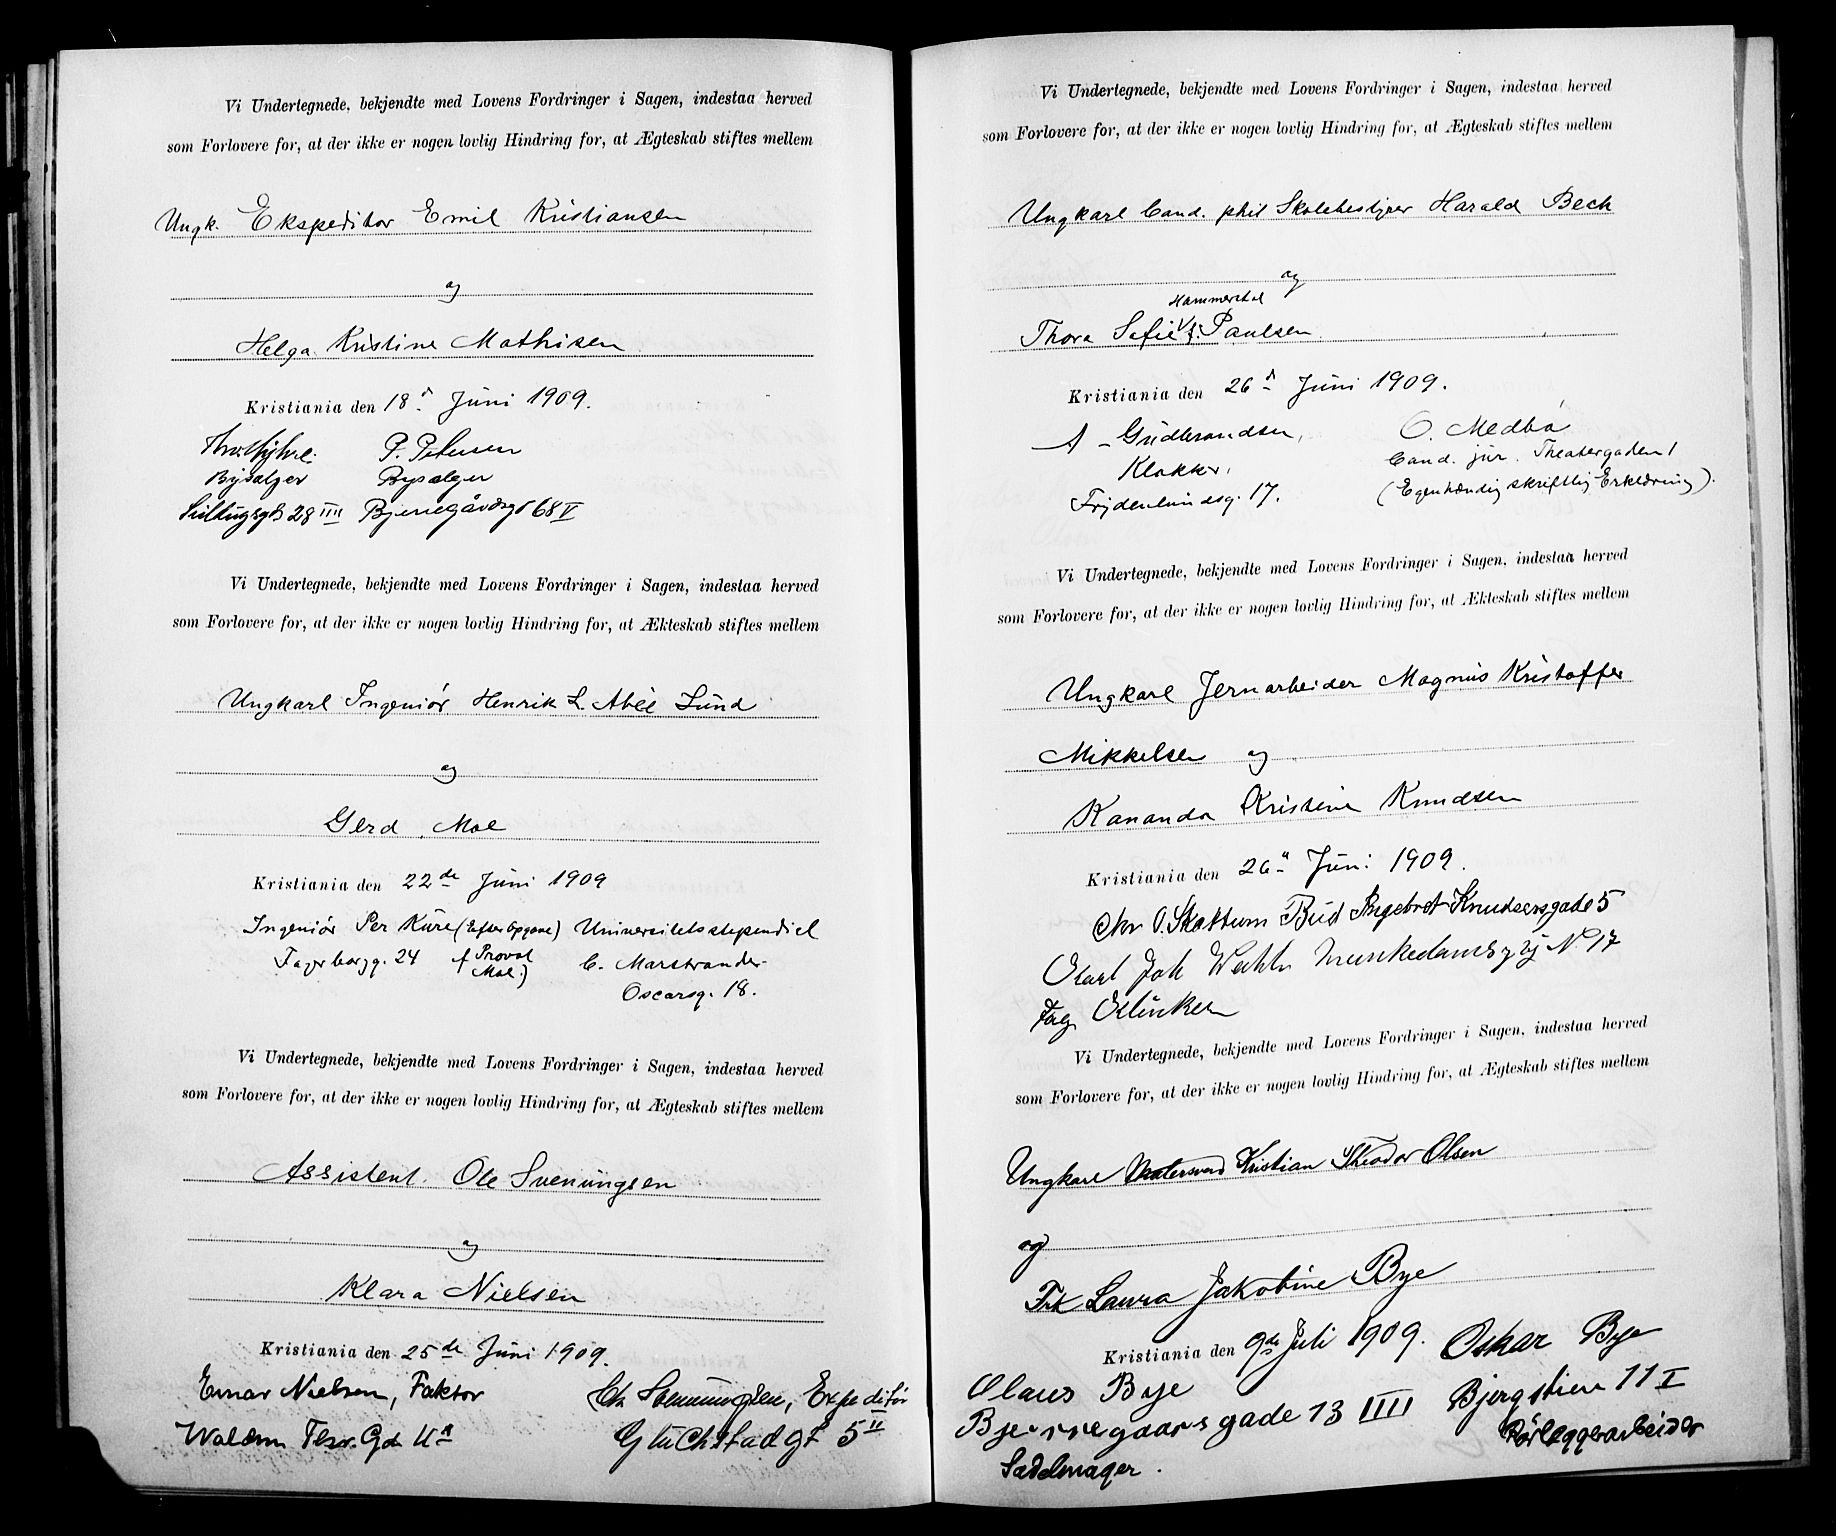 Vi Undertegnede, bekjendte med Lovens Fordringer i Sagen, indestaa herved
som Forlovere for, at der ikke er nogen lovlig Hindring for, at Ægteskab stiftes mellem
Ungk. Ekspeditor Emil Kristiansen
og
Helga Kristine Mathisen
Kristiania den 18d Juni 1909.
P. Petersen
Bysælger Bysælger
28 IIII Bjerregårdsgt 68 V
Vi Undertegnede, bekjendte med Lovens Fordringer i Sagen, indestaa herved
som Forlovere for, at der ikke er nogen lovlig Hindring for, at Ækteskab stiftes mellem
Ungkarl Ingeniør Henrik L. Abél Lund
og
Gerd Moe
Kristiania den 22de Juni 1909
Ingeniør Per Kure (Efter Opgave) Universitetsstipendiat
Fagerborgg. 24 af Provst C. Marstrander
Moe.) Oscarsg. 18.
Vi Undertegnede, bekjendte med Lovens Fordringer i Sagen, indestaa herved
som Forlovere for, at der ikke er nogen lovlig Hindring for, at Ægteskab stiftes mellem
Assistent Ole Svenungsen
og
Klara Nielsen
Kristiania den 25de Juni 1909.
Einar Nielsen, Faktor Chr Svenungsen, Expeditør
Waldem Thr. Gd. 11a Glückstadgt 5 II
Vi Undertegnede, bekjendte med Lovens Fordringer i Sagen, indestaa herved
som Forlovere for, at der ikke er nogen lovlig Hindring for, at Ægteskab stiftes mellem
Ungkarl Cand. phil Skolebestyrer Harald Bech
og
Hammerstad
Thora Sofie f. Paulsen
Kristiania den 26d Juni 1909.
A. Gudbrandsen, O. Medbø
Klokker, Cand. jur. Theatergaden 1
Frydenlundsg. 17. (Egenhændig skriftlig Erklæring).
Vi Undertegnede, bekjendte med Lovens Fordringer i Sagen, indestaa herved
som Forlovere for, at der ikke er nogen lovlig Hindring for, at Ækteskab stiftes mellem
Ungkarl Jernarbeider Magnus Kristoffer
Mikkelsen og
Kananda Kristine Knudsen
Kristiania den 26d Juni 1909.
Chr O. Skattum Bud Ingebret Knudsensgade 5
Karl Joh Munkedamsvej No 17
Vi Undertegnede, bekjendte med Lovens Fordringer i Sagen, indestaa herved
som Forlovere for, at der ikke er nogen lovlig Hindring for, at Ægteskab stiftes mellem
Ungkarl Kristian Theodor Olsen
og
Frk Laura Jakobine Bye
Kristiania den 9de Juli 1909. Oskar Bye
Olaus Bye Bjergstien 11 I
Bjerregaardsgade 13 IIII Rørlæggerarbeider
Sadelmager.